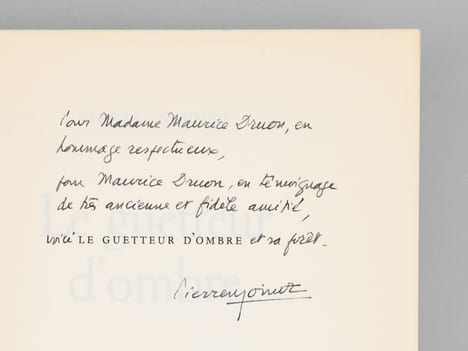 Pour Madame Maurice Druon, en
hommage respectueux,
pour Maurice Druon, en témoignage
de très ancienne et fidèle amitié,
voici LE GUETTEUR D'OMBRE et sa forêt.
Pierre Moinot
Le guetteur
d'ombre